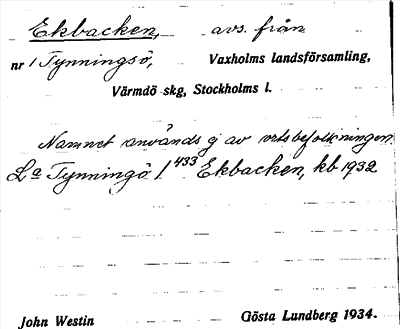 Ekbacken, avs. från
nr 1 Tynningsö, Vaxholms landsförsamling,
Värmdö skg, Stockholms l.
Namnet används ej av ortsbefolkningen.
La Tynningö 1 433 Ekbacken, kb 1932
John Westin Gösta Lundberg 1934.